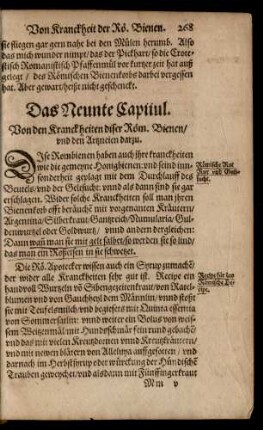 Von Kranckheit der Rö. Bienen. 268
sie fliegen gar gern nahe bei den Mülen herumb. Also
das mich wunder nimpt / das der Pickhart / so die
listisch Romanistisch Pfaffenmül vor kurtzer zeit hat auß
gelegt / des Römischen Bienenkorbs darbei vergessen
hat. Aber gewart / heißt nicht geschenckt.
Das Neunte Capitul.
Von den Kranckheiten diser Röm. Bienen /
vnd den Artzneien darzu.
DIse Rombienen haben auch ihre kranckheiten
wie die gemeyne Honigbienen: vnd seind inn
sonderheit geplagt mit dem Durchlauff des
Beutels / vnd der Gelsucht: vnnd als dann sind sie gar
erschlagen. Wider solche Kranckheiten soll man ihren
Bienenkorb offt beräuche mit vorgenanten Kräutern
Argentina / Silberkraut / Gantzreich / Numularia / Gul-
denwurtzel oder Geldwurtz / vnnd andern dergleichen:
Dann wañ man sie mit gelt salbet / so werden sie so lind /
das man ein Roßeisen in sie schwetzet.
Die Rö. Apotecker wissen auch ein Syrup zumachē
der wider alle Kranckheiten sehr gut ist. Recipe ein
handvoll Wurtzeln võ Sibengezeitenkraut / von
blumen vnd von Gauchheyl dem Männlin / vnnd stoßt
sie mit Teufelsmilch vnd begießts mit Quinta essentia
von Sommersulin: vnnd weiter ein Bolus von weis-
sem Weitzenmäl mit Hundsschmär fein rund gebachē /
vnd das mit vielen Creutzdornen vnnd Kreuzkräutern /
vnd mit newen blättern von Allelujia auffgesotten / vnd
darnach im Herbstsyrup oder würckung der Hündischē
Trauben geweychet / vnd als dann mit Fünffingerkraut
Mm v
Römische Rot
Rur vnd Gelb-
sucht.
Recept für das
Römische